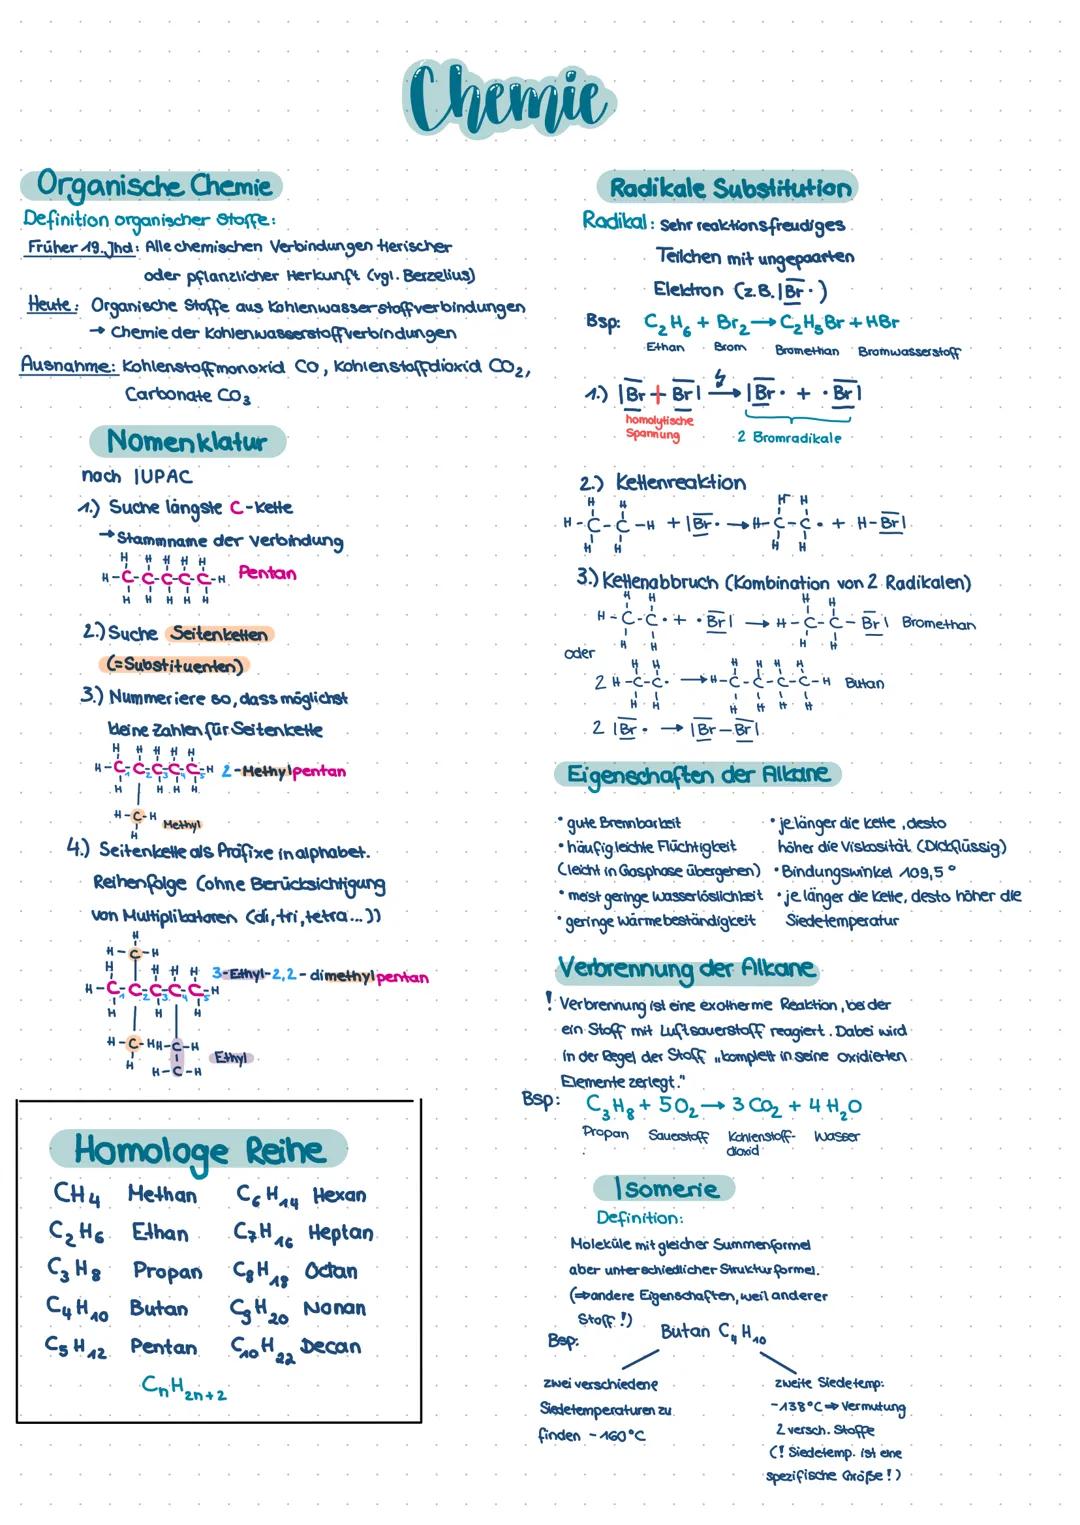 Chemie
Organische Chemie
Definition organischer Stoffe:
Früher 19. Jhd: Alle chemischen Verbindungen tierischer
oder pflanzlicher Herkunft (vgl. Berzelius)
Heute: Organische Stoffe aus Kohlenwasserstoffverbindungen
→ Chemie der Kohlenwasserstoffverbindungen
Ausnahme: Kohlenstoffmonoxid CO, Kohlenstoffdioxid CO₂,
Carbonate CO₃
Nomenklatur
nach IUPAC
1.) Suche längste C-Kette
→ Stammname der Verbindung
H H H H H
H-C-C-C-C-C-H Pentan
H H H H H
2.) Suche Seitenketten
(=Substituenten)
3.) Nummeriere so, dass möglichst
kleine Zahlen für Seitenkette
H H H H H
H-C-C-C-C-C-H 2-Methylpentan
1 2 3 4 5
H H H H
H-C-H Methyl
H
4.) Seitenkette als Präfixe in alphabet.
Reihenfolge (ohne Berücksichtigung
von Multiplikatoren (di, tri, tetra...))
H
H-C-H
H H H H 3-Ethyl-2,2-dimethylpentan
H-C-C-C-C-C-H
1 2 3 4 5
H H H
H-C-H H-C-H
H H-C-H Ethyl
Homologe Reihe
CH₄ Methan C₆H₁₄ Hexan
C₂H₆ Ethan C₇H₁₆ Heptan
C₃H₈ Propan C₈H₁₈ Octan
C₄H₁₀ Butan C₉H₂₀ Nonan
C₅H₁₂ Pentan C₁₀H₂₂ Decan
CₙH₂ₙ₊₂
Radikale Substitution
Radikal: Sehr reaktionsfreudiges
Teilchen mit ungepaarten
Elektron (z.B. |Br·)
Bsp: C₂H₆ + Br₂ → C₂H₅Br + HBr
Ethan Brom Bromethan Bromwasserstoff
1.) |Br + Br| → |Br· + ·Br|
homolytische
Spannung
2 Bromradikale
2.) Kettenreaktion
H H H H
H-C-C-H + |Br· → H-C-C· + H-Br|
H H H H
3.) Kettenabbruch (Kombination von 2 Radikalen)
H H H H
H-C-C· + ·Br| → H-C-C-Br| Bromethan
H H H H
oder
H H H H H H
2 H-C-C· → H-C-C-C-C-H Butan
H H H H H H
2 |Br· → |Br-Br|
Eigenschaften der Alkane
• gute Brennbarkeit
• häufig leichte Flüchtigkeit
(leicht in Gasphase übergehen)
• meist geringe Wasserlöslichkeit
• geringe Wärmebeständigkeit
• je länger die Kette, desto
höher die Viskosität (Dickflüssig)
• Bindungswinkel 109,5°
• je länger die Kette, desto höher die
Siedetemperatur
Verbrennung der Alkane
! Verbrennung ist eine exotherme Reaktion, bei der
ein Stoff mit Luftsauerstoff reagiert. Dabei wird
in der Regel der Stoff „komplett in seine oxidierten
Elemente zerlegt."
Bsp: C₃H₈ + 5O₂ → 3CO₂ + 4H₂O
Propan Sauerstoff Kohlenstoff- Wasser
dioxid
Isomerie
Definition:
Moleküle mit gleicher Summenformel
aber unterschiedlicher Strukturformel.
(⇒ andere Eigenschaften, weil anderer
Stoff!)
Bsp: Butan C₄H₁₀
zwei verschiedene
Siedetemperaturen zu
finden -160°C
zweite Siedetemp:
-138°C ⇒ Vermutung
2 versch. Stoffe
(! Siedetemp. ist eine
spezifische Größe!)